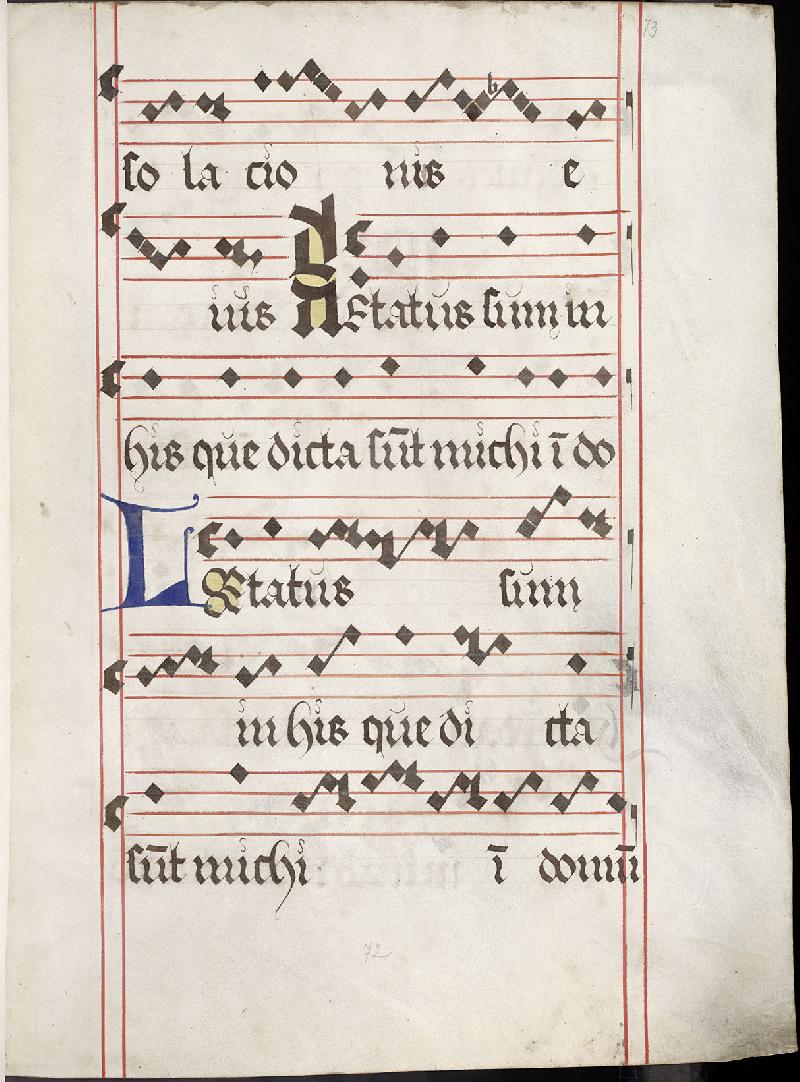 73
so la cio nis e
b
ius Letatus sum in
his que dicta sūt michi ī do
Letatus sum
in his que di cta
sūt michi ī domū
72